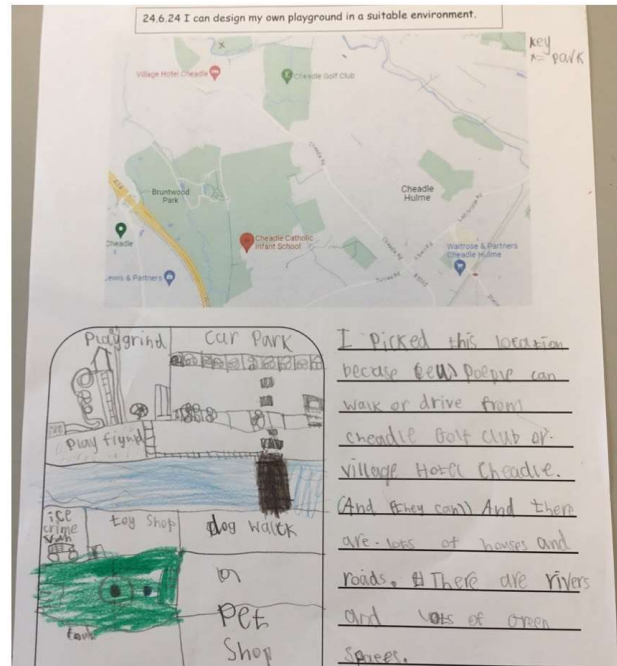 24.6.24 I can design my own playground in a suitable environment.
key
x= park
x
Village Hotel Cheadle
Cheadle Golf Club
Cheadle Rd
Bruntwood
Park
Cheadle
Hulme
Ladybridge Rd
Cheadle
Cheadle Catholic
Infant School
Cheadle Rd
Waitrose & Partners
Cheadle Hulme
Lewis & Partners
Turves Rd
Playgrind
Car Park
Play
ice
crime
toy Shop
dog walk
or
Pet
Shop
I Picked this location
becase Poeple can
walk or drive from
cheadle Golf club or
village Hotel Cheadle.
(And they can)) And there
are lots of houses and
roads. There are rivers
and lots of green
spaces.